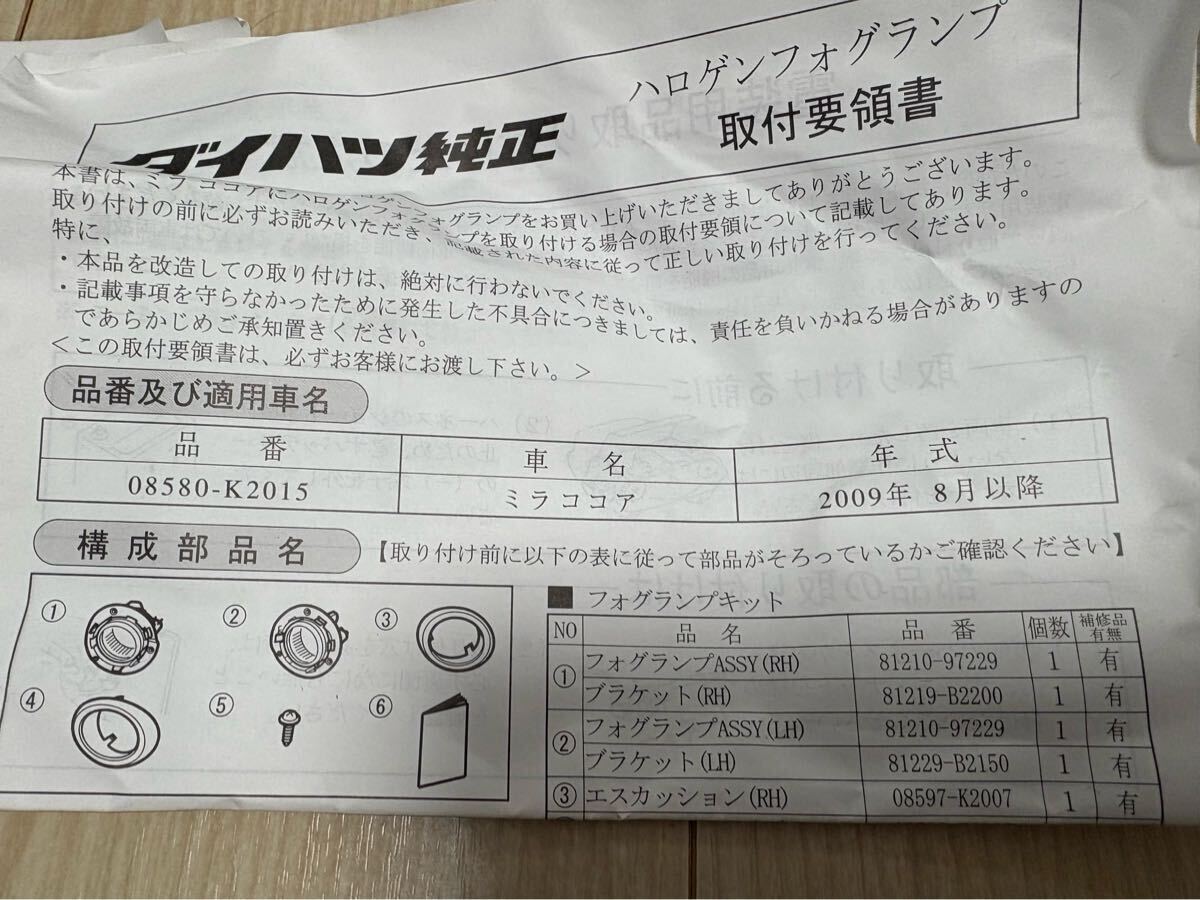 ハロゲンフォグランプ
ダイハツ純正 取付要領書
本書は、ミラ ココアにハロゲンフォグランプをお買い上げいただきましてありがとうございます。
取り付けの前に必ずお読みいただき、ンプを取り付ける場合の取付要領について記載してあります。
特に、記載された内容に従って正しい取り付けを行ってください。
・本品を改造しての取り付けは、絶対に行わないでください。
・記載事項を守らなかったために発生した不具合につきましては、責任を負いかねる場合がありますの
であらかじめご承知置きください。
＜この取付要領書は、必ずお客様にお渡し下さい。＞
品番及び適用車名
品 番 車 名 年 式
08580-K2015 ミラココア 2009年 8月以降
構成部品名 【取り付け前に以下の表に従って部品がそろっているかご確認ください】
① ② ③
④ ⑤ ⑥
■ フォグランプキット
NO 品 名 品 番 個数 補修品有無
① フォグランプASSY(RH) 81210-97229 1 有
ブラケット(RH) 81219-B2200 1 有
② フォグランプASSY(LH) 81210-97229 1 有
ブラケット(LH) 81229-B2150 1 有
③ エスカッション(RH) 08597-K2007 1 有